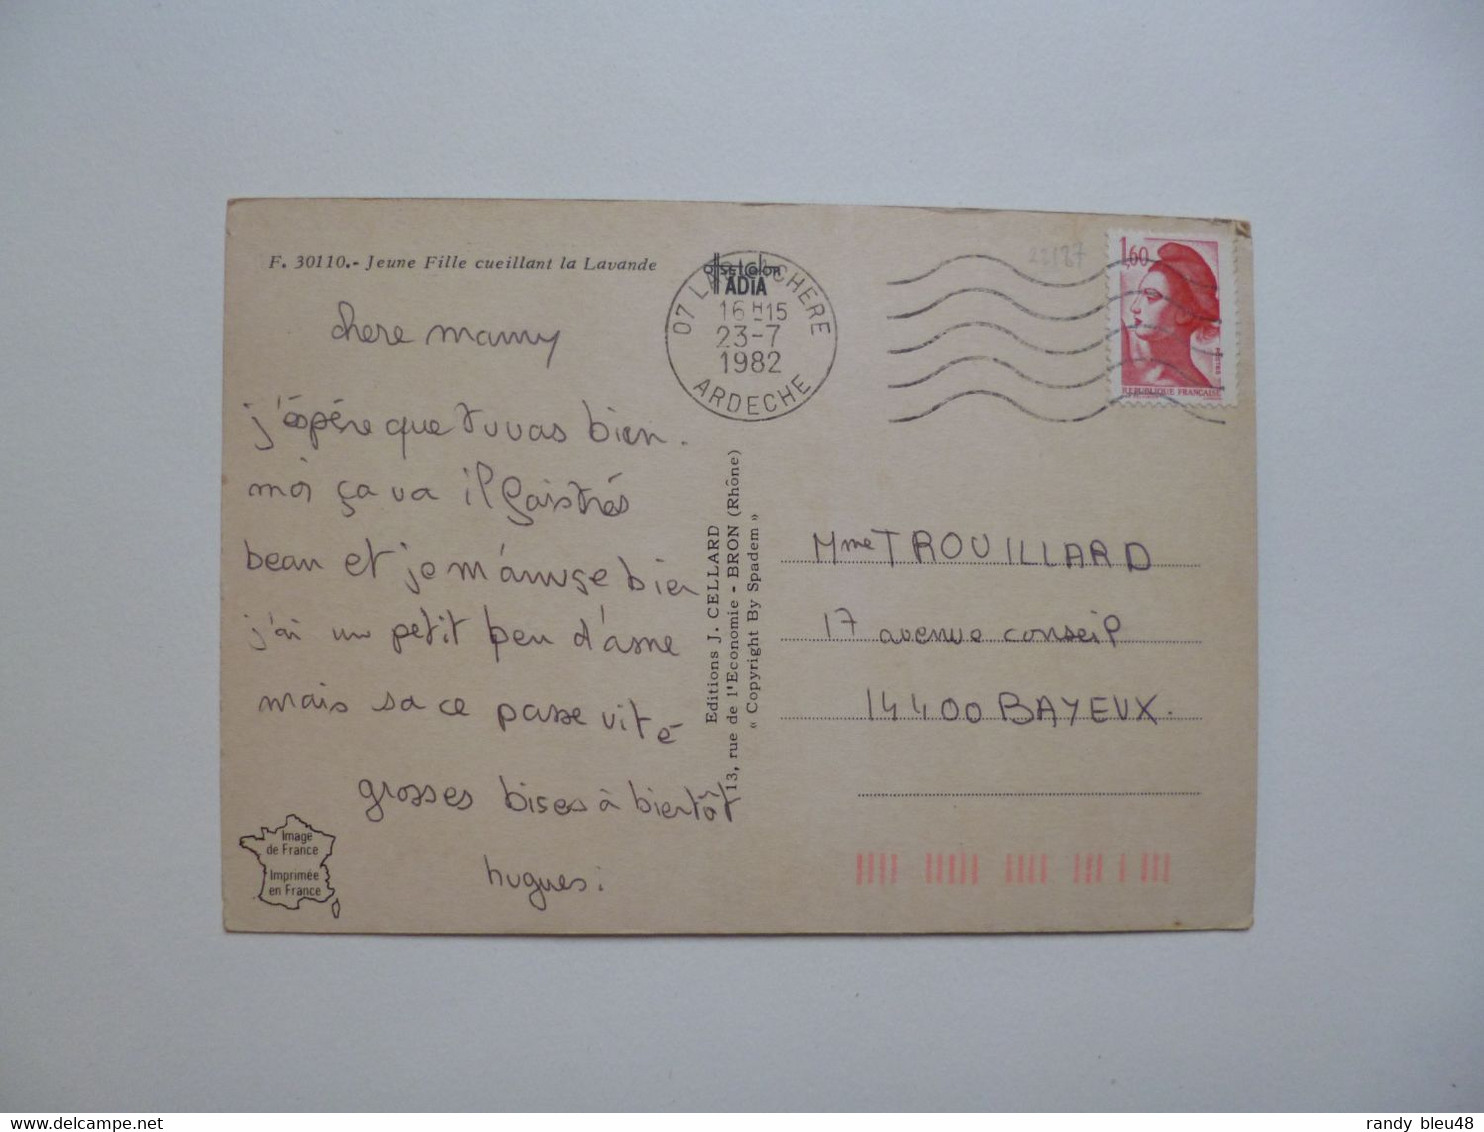 F. 30110.- Jeune Fille cueillant la Lavande
chere mamy
j'éspére que tu vas bien.
moi ça va il fais trés
beau et je m'amuse bien
j'ai un petit peu d'asme
mais sa ce passe vite
grosses bises à bientôt
hugues.
Image
de France
Imprimée
en France
ADIA
07 CHERE
16 H 15
23-7
1982
ARDECHE
Editions J. CELLARD
13, rue de l'Economie - BRON (Rhône)
« Copyright By Spadem »
1,60
POSTES
REPUBLIQUE FRANÇAISE
Mme TROUILLARD
17 avenue conseil
14400 BAYEUX.
randy_bleu48